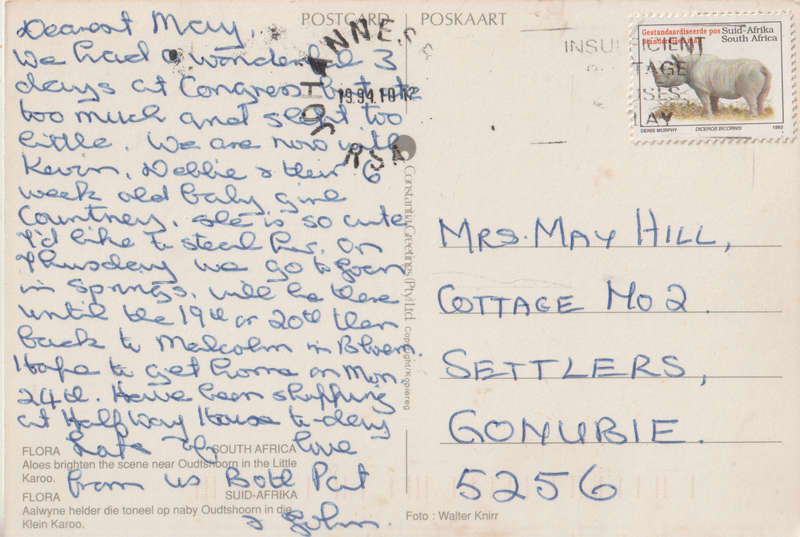 POSTCARD | POSKAART
Dearest May,
We had a wonderful 3
days at Congress but ate
too much and slept too
little. We are now with
Kevin, Debbie & their 6
week old baby girl
Courtney, she is so cute
I'd like to steal her. On
Thursday we go to Joan
in Springs, will be there
until the 19th or 20th then
back to Malcolm in Bloem.
Hope to get home on Mon
24th. Have been shopping
at Halfway House to-day
Lots of love
from us Both Pat
& John.
FLORA SOUTH AFRICA
Aloes brighten the scene near Oudtshoorn in the Little
Karoo.
FLORA SUID-AFRIKA
Aalwyne helder die toneel op naby Oudtshoorn in die
Klein Karoo.
Constantia Greetings (Pty) Ltd. Copyright/Kopiereg
Foto : Walter Knirr
JOHANNES
1994.10.12
RSA
INSUFFICIENT
Gestandaardiseerde pos
Suid-Afrika
South Africa
DENIS MURPHY DICEROS BICORNIS 1993
MRS. MAY HILL,
COTTAGE No 2.
SETTLERS,
GONUBIE.
5256